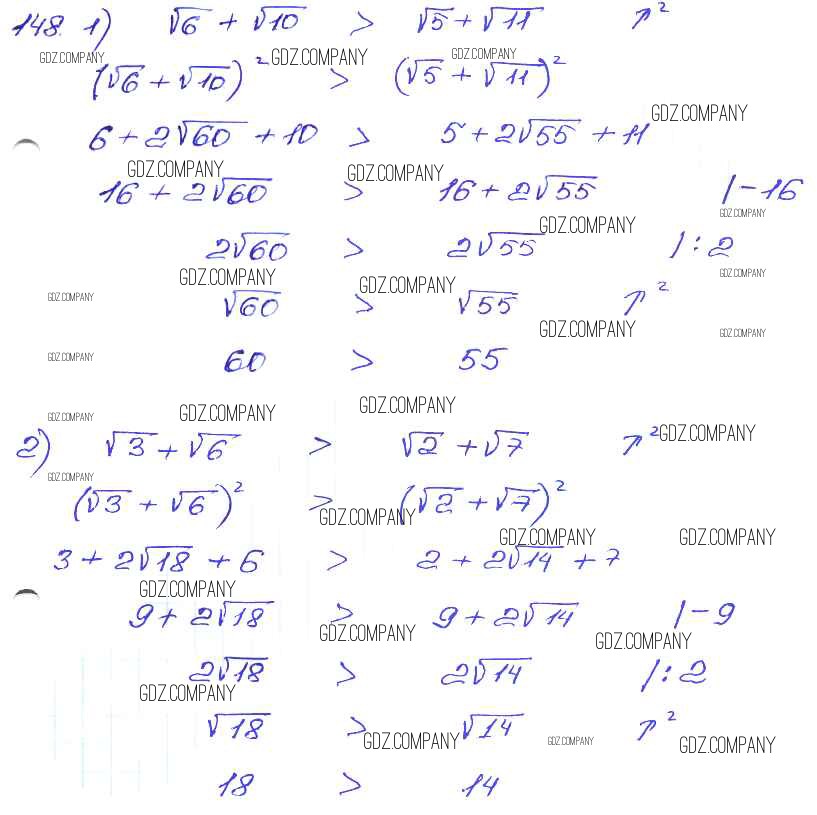 148. 1) √6 + √10 > √5 + √11 ↑²
GDZ.COMPANY GDZ.COMPANY GDZ.COMPANY
(√6 + √10)² > (√5 + √11)²
GDZ.COMPANY
6 + 2√60 + 10 > 5 + 2√55 + 11
GDZ.COMPANY GDZ.COMPANY
16 + 2√60 > 16 + 2√55 | - 16
GDZ.COMPANY GDZ.COMPANY
2√60 > 2√55 | : 2
GDZ.COMPANY GDZ.COMPANY GDZ.COMPANY
GDZ.COMPANY √60 > √55 ↑²
GDZ.COMPANY GDZ.COMPANY
GDZ.COMPANY 60 > 55
GDZ.COMPANY GDZ.COMPANY GDZ.COMPANY
2) √3 + √6 > √2 + √7 ↑² GDZ.COMPANY
GDZ.COMPANY
(√3 + √6)² > (√2 + √7)²
GDZ.COMPANY GDZ.COMPANY GDZ.COMPANY
3 + 2√18 + 6 > 2 + 2√14 + 7
GDZ.COMPANY
9 + 2√18 > 9 + 2√14 | - 9
GDZ.COMPANY GDZ.COMPANY
2√18 > 2√14 | : 2
GDZ.COMPANY
√18 > √14 ↑²
GDZ.COMPANY GDZ.COMPANY GDZ.COMPANY
18 > 14